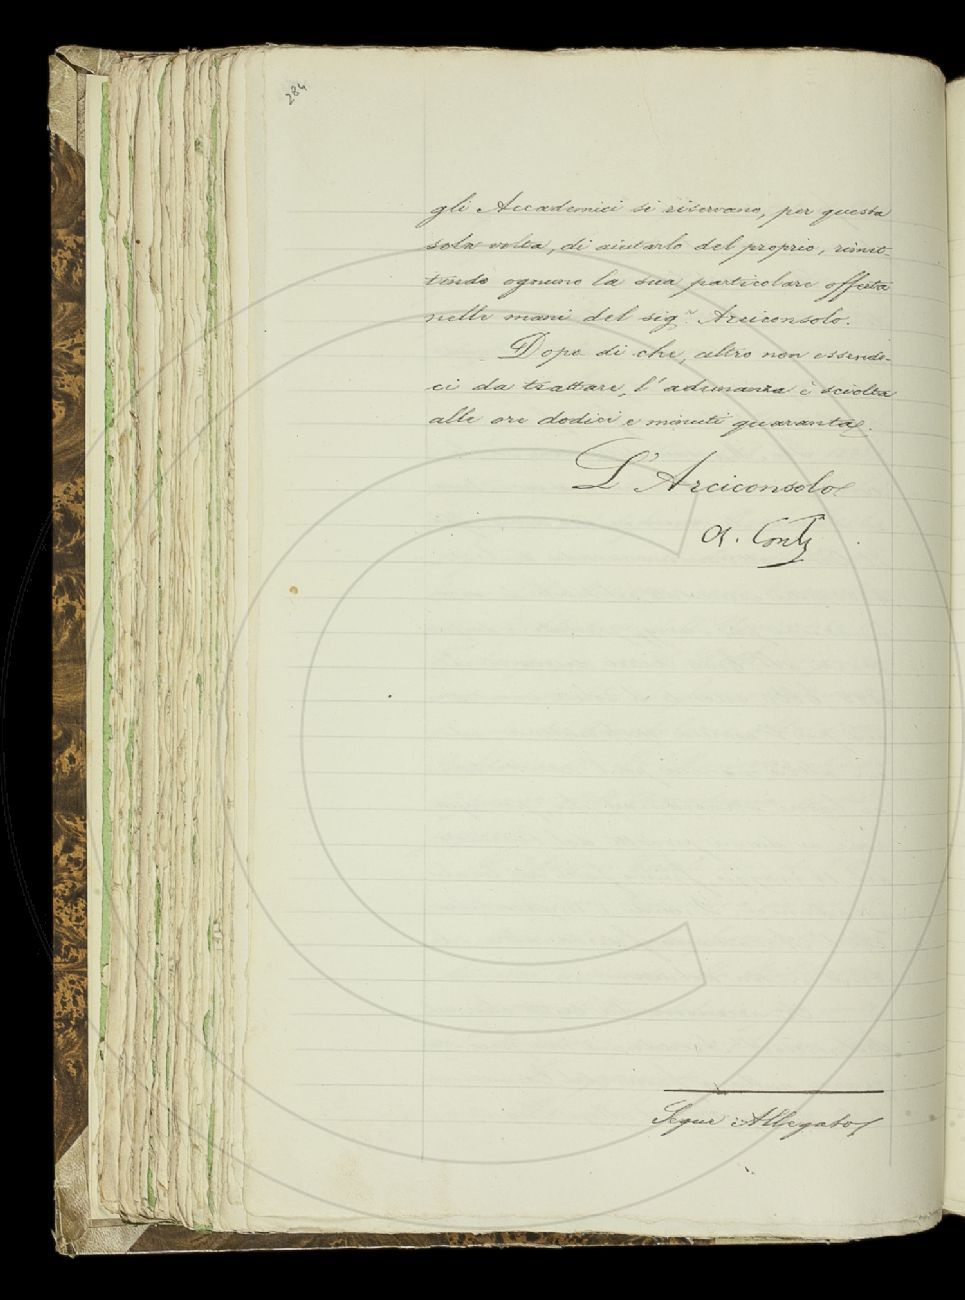 284
gli Accademici si riservano, per questa
sola volta, di aiutarlo del proprio, rimet-
tendo ognuno la sua particolare offerta
nelle mani del sig.r Arciconsolo.
Dopo di che, altro non essendo-
ci da trattare, l'adunanza è sciolta
alle ore dodici e minuti quaranta.
L'Arciconsolo
A. Conti
Segue Allegato